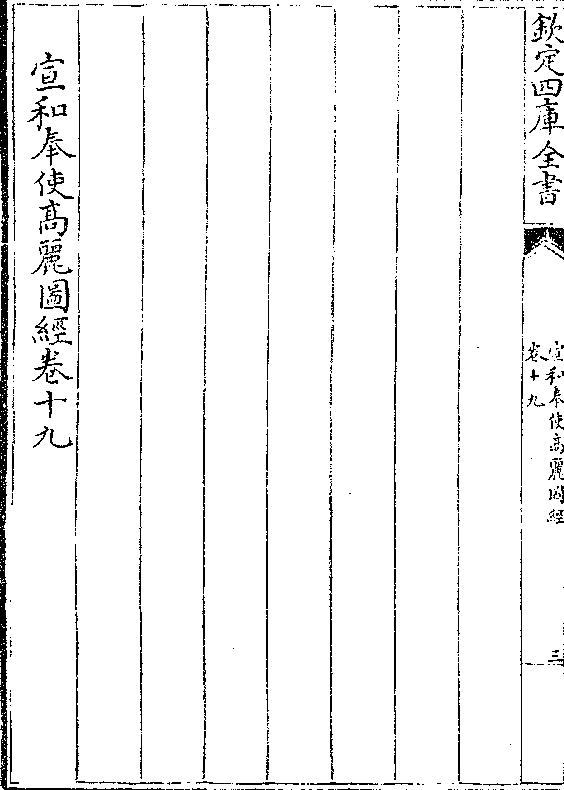 欽定四庫全書
宣和奉使高麗圖經
卷十九
三
宣和奉使高麗圖經卷十九